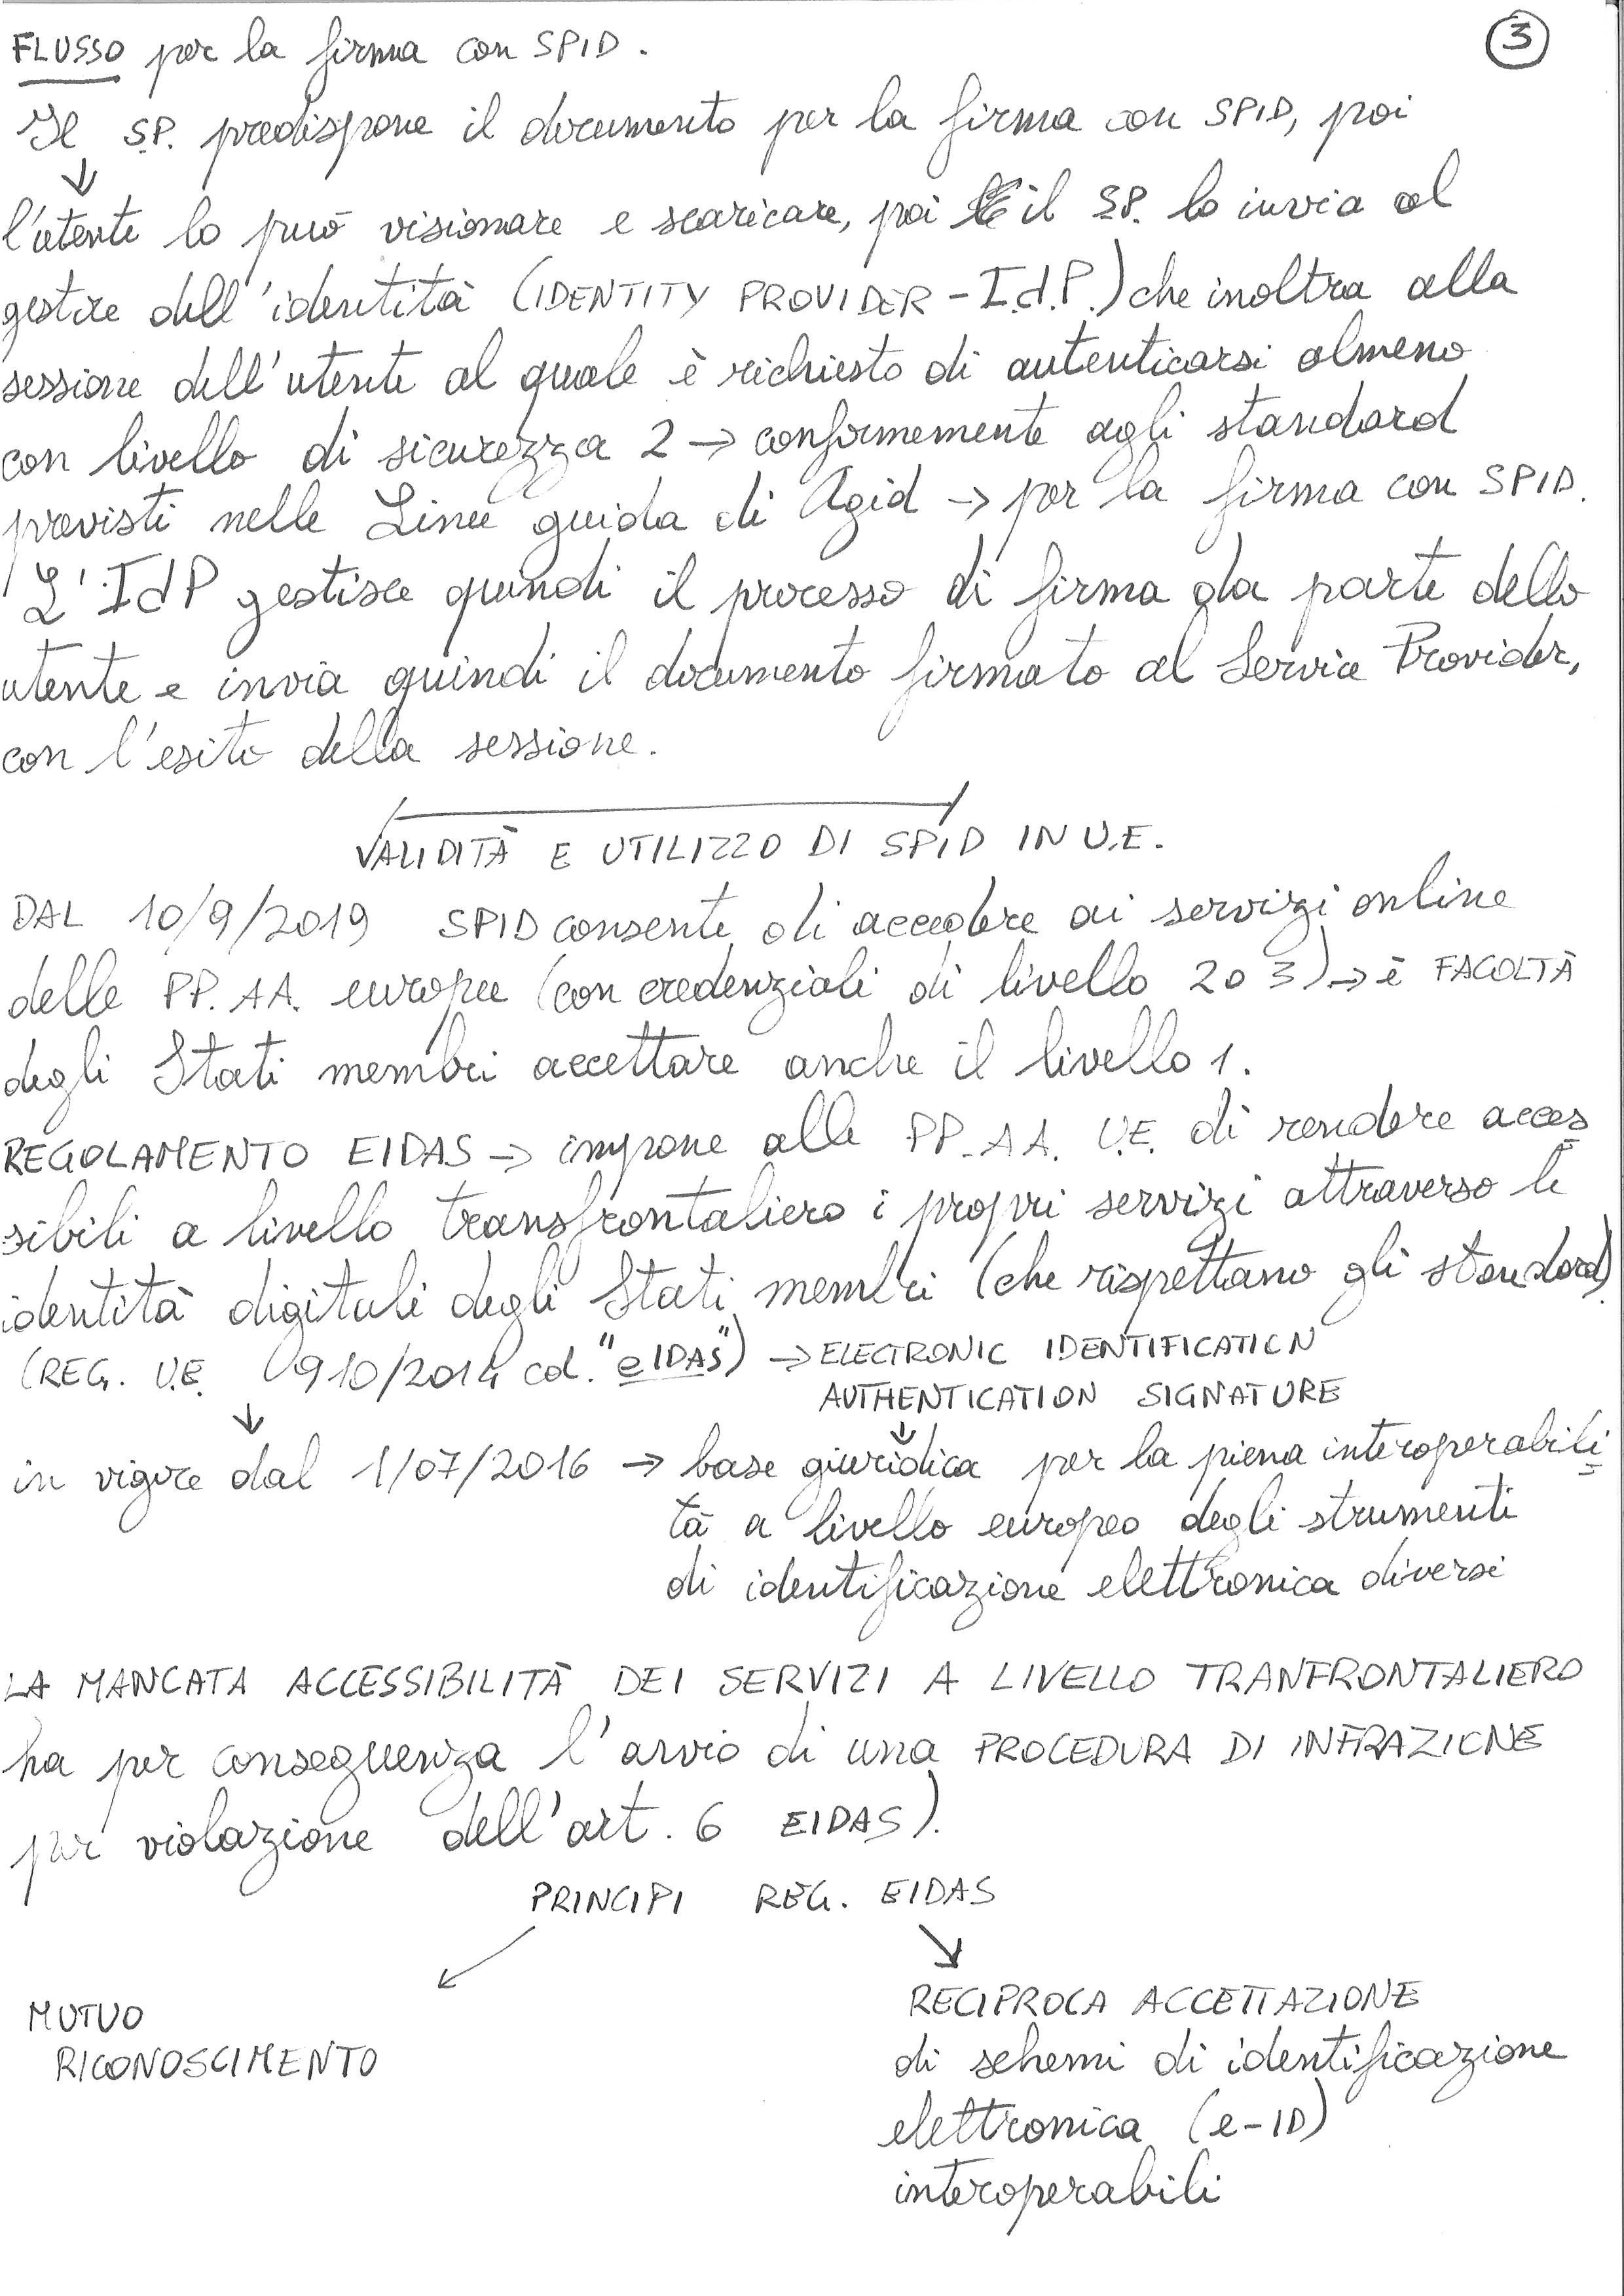 FLUSSO per la firma con SPID.
3
Il S.P. predispone il documento per la firma con SPID, poi
↓
l'utente lo può visionare e scaricare, poi il S.P. lo invia al
gestire dell'identità (IDENTITY PROVIDER - I.d.P.) che inoltra alla
sessione dell'utente al quale è richiesto di autenticarsi almeno
con livello di sicurezza 2 → conformemente agli standard
previsti nelle Linee guida di Agid → per la firma con SPID.
L'IdP gestisce quindi il processo di firma da parte dello
utente e invia quindi il documento firmato al Service Provider,
con l'esito della sessione.
VALIDITÀ E UTILIZZO DI SPID IN U.E.
DAL 10/9/2019 SPID consente di accedere ai servizi online
delle PP.AA. europee (con credenziali di livello 2 o 3) → è FACOLTÀ
degli Stati membri accettare anche il livello 1.
REGOLAMENTO EIDAS → impone alle PP.AA. U.E. di rendere acces
sibili a livello transfrontaliero i propri servizi attraverso le
identità digitali degli Stati membri (che rispettano gli standard)
(REG. U.E. 910/2014 cd. "eIDAS") → ELECTRONIC IDENTIFICATION
AUTHENTICATION SIGNATURE
↓ ↓
in vigore dal 1/07/2016 → base giuridica per la piena interoperabili
tà a livello europeo degli strumenti
di identificazione elettronica diversi
LA MANCATA ACCESSIBILITÀ DEI SERVIZI A LIVELLO TRANFRONTALIERO
ha per conseguenza l'avvio di una PROCEDURA DI INFRAZIONE
per violazione dell'art. 6 EIDAS).
PRINCIPI REG. EIDAS
MUTUO
RICONOSCIMENTO
RECIPROCA ACCETTAZIONE
di schemi di identificazione
elettronica (e-ID)
interoperabili